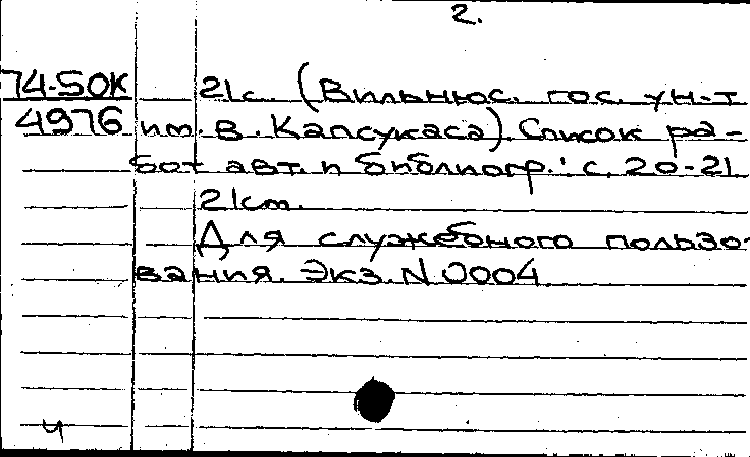 2.
74-5ОК 21с. (Вильнюс. гос. ун-т
4976 им. В. Капсукаса). Список ра-
бот авт. и библиогр.: с. 20-21
21см.
Для служебного пользо-
вания. Экз. N 0004.
ч